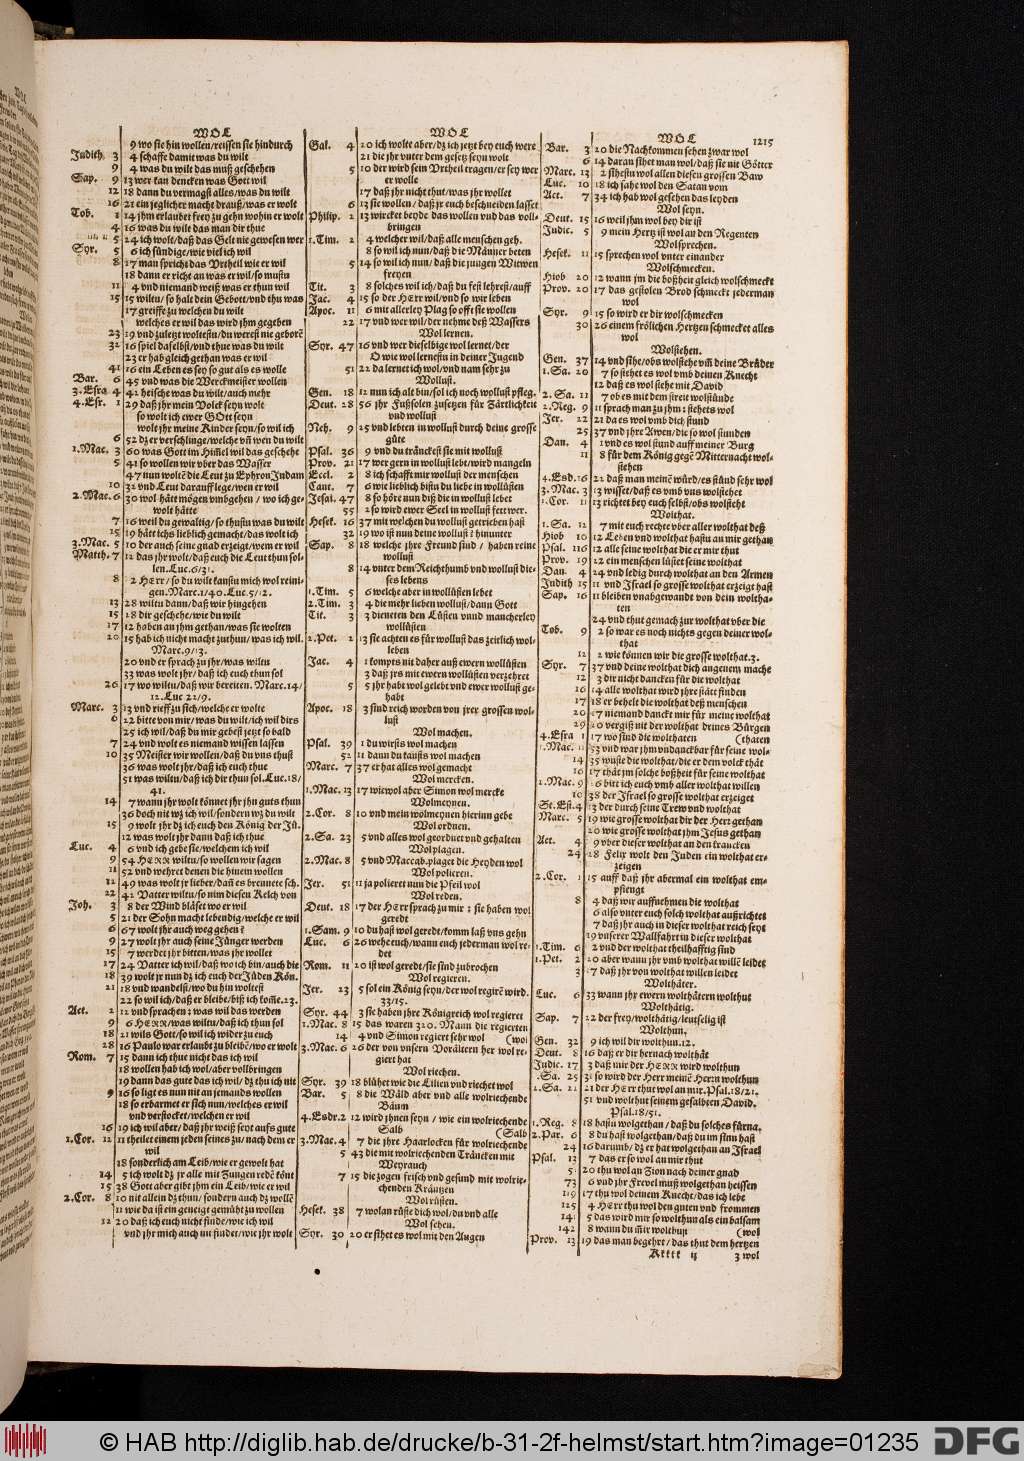 WOL
9 wo sie hin wollen/reissen sie hindurch
Judith. 3 4 schaffe damit was du wilt
9 4 was du wilt das muß geschehen
Sap. 9 13 wer kan dencken was Gott wil
12 18 dann du vermagst alles/was du wilt
16 21 ein jeglicher macht drauß/was er wolt
Tob. 1 14 jhm erlaubet frey zu gehn wohin er wolt
4 16 was du wilt das man dir thue
5 24 ich wolt/daß das Gelt nie gewesen wer
Syr. 5 6 ich sündige/wie viel ich wil
8 17 man spricht das Vrtheil wie er wil
18 dann er richt an was er wil/so mustu
11 4 vnd niemand weiß was er thun wil
15 15 wiltu/so halt dein Gebott/vnd thu was
17 greiffe zu welchen du wilt
welches er wil das wird jhm gegeben
23 19 vnd zuletzt woltestu/du werest nie geborē
32 16 spiel daselbst/vnd thue was du wilt
23 er hab gleich gethan was er wil
41 16 ein Leben es sey so gut als es wolle
Bar. 6 45 vnd was die Werckmeister wollen
3. Esra 4 42 heische was du wilt/auch mehr
4. Esr. 1 29 daß jhr mein Volck seyn wolt
so wolt ich ewer GOtt seyn
wolt jhr meine Kinder seyn/so wil ich
6 52 dz er verschlinge/welche vñ wen du wilt
1. Mac. 3 60 was Gott im Him̃el wil das geschehe
5 41 so wollen wir vber das Wasser
47 nun woltē die Leut zu Ephron Judam
10 32 vnd Leut darauff lege/wen er wil
2. Mac. 6 30 wol hätt mögen vmbgehen / wo ich gewolt
hätte
7 16 weil du gewaltig/so thustu was du wilt
15 19 hätt ichs lieblich gemacht/das wolt ich
3. Mac. 5 10 der auch seine gnad erzeigt/wem er wil
Matth. 7 12 das jhr wolt/daß euch die Leut thun sollen.
Luc. 6/31.
8 2 Herr/so du wilt kanstu mich wol reinigen.
Marc. 1/40. Luc. 5/12.
13 28 wiltu dann/daß wir hingehen
15 18 dir geschehe/wie du wilt
17 12 haben an jhm gethan/was sie wolten
20 15 hab ich nicht macht zuthun/was ich wil.
Marc. 9/13.
20 vnd er sprach zu jhr/was wiltu
33 was wolt jhr/daß ich euch thun sol
26 17 wo wiltu/daß wir bereiten. Marc. 14/
12. Luc 22/9.
Marc. 3 13 vnd rieff zu sich/welche er wolte
6 22 bitte von mir/was du wilt/ich wil dirs
25 ich wil/daß du mir gebest jetzt so bald
7 24 vnd wolt es niemand wissen lassen
10 35 Meister wir wollen/daß du vns thust
36 was wolt jhr/daß ich euch thue
51 was wiltu/daß ich dir thun sol. Luc. 18/
41.
14 7 wann jhr wolt könnet jhr jhn guts thun
36 doch nit wz ich wil/sondern wz du wilt
15 9 wolt jhr dz ich euch den König der Jü.
12 was wolt jhr dann daß ich thue
Luc. 4 6 vnd ich gebe sie/welchem ich wil
9 54 HERR wiltu/so wollen wir sagen
11 52 vnd wehret denen die hinein wollen
12 49 was wolt jr lieber/dañ es brennete sch.
22 42 Vatter wiltu/so nim diesen Kelch von
Joh. 3 8 der Wind bläset wo er wil
5 21 der Sohn macht lebendig/welche er wil
6 67 wolt jhr auch weg gehen?
9 27 wolt jhr auch seine Jünger werden
15 7 werdet jhr bitten/was jhr wollet
17 24 Vatter ich wil/daß wo ich bin/auch die
18 39 wolt jr nun dz ich euch der Jüden Kön.
21 18 vnd wandelst/wo du hin woltest
22 so wil ich/daß er bleibe/biß ich kom̃e. 23.
Act. 2 12 vnd sprachen: was wil das werden
9 6 HERR/was wiltu/daß ich thun sol
18 21 wils Gott/so wil ich wider zu euch
28 16 Paulo war erlaubt zu bleibē/wo er wolt
Rom. 7 15 dann ich thue nicht das ich wil
18 wollen hab ich wol/aber vollbringen
19 dann das gute das ich wil/dz thu ich nit
9 16 so ligt es nun nit an jemands wollen
18 so erbarmet er sich nun/welches er wil
vnd verstocket/welchen er wil
16 19 ich wil aber/daß jhr weiß seyt auffs gute
1. Cor. 12 11 theilet einem jeden seines zu/nach dem er
wil
18 sonderlich am Leib/wie er gewolt hat
14 5 ich wolt dz jr alle mit Zungen redē könt
15 38 Gott aber gibt jhm ein Leib/wie er wil
2. Cor. 8 10 nit allein dz thun/sondern auch dz wollē
11 wie da ist ein geneigt gemüht zu wollen
12 20 daß ich euch nicht finde/wie ich wil
vnd jhr mich auch nit findet/wie jhr wolt
WOL
Gal. 4 20 ich wolte aber/dz ich jetzt bey euch were
21 die jhr vnter dem gesetz seyn wolt
5 10 der wird sein Vrtheil tragen/er sey wer
er wolle
17 daß jhr nicht thut/was jhr wollet
6 13 sie wollen/daß jr euch beschneiden lasset
Philip. 2 13 wircket beyde das wollen vnd das vollbringen
1. Tim. 2 4 welcher wil/daß alle menschen geh.
8 so wil ich nun/daß die Männer beten
5 14 so wil ich nun/daß die jungen Witwen
freyen
Tit. 3 8 solches wil ich/daß du fest lehrest/auff
Jac. 4 15 so der HERR wil/vnd so wir leben
Apoc. 11 6 mit allerley Plag so offt sie wollen
22 17 vnd wer wil/der nehme deß Wassers
Wol lernen.
Syr. 47 16 vnd wer dieselbige wol lernet/der
O wie wol lernestu in deiner Jugend
51 22 da lernet ich wol/vnd nam sehr zu
Wollust.
Gen. 18 12 nun ich alt bin/sol ich noch wollust pfleg.
Deut. 28 56 jhr Fußsolen zusetzen für Zärtlichkeit
vnd wollust
Neh. 9 25 vnd lebten in wollust durch deine grosse
güte
Psal. 36 9 vnd du tränckest sie mit wollust
Prov. 21 17 wer gern in wollust lebt/wird mangeln
Eccl. 2 8 ich schafft mir wollust der menschen
Cant. 7 6 wie lieblich bistu du liebe in wollüsten
Jesai. 47 8 so höre nun diß die in wollust lebet
55 2 so wird ewer Seel in wollust fett wer.
Hesek. 16 37 mit welchen du wollust getrieben hast
32 19 wo ist nun deine wollust? hinunter
Sap. 8 18 welche jhre Freund sind / haben reine
wollust
8 14 vnter dem Reichthumb vnd wollust dieses
lebens
1. Tim. 5 6 welche aber in wollüsten lebet
2. Tim. 3 4 die mehr lieben wollust/dann Gott
Tit. 3 3 dieneten den Lüsten vnnd mancherley
wollüsten
2. Pet. 2 13 sie achten es für wollust das zeitlich wolleben
Jac. 4 1 kompts nit daher auß ewern wollüsten
3 daß jrs mit ewern wollüsten verzehret
5 5 jhr habt wol gelebt vnd ewer wollust gehabt
Apoc. 18 3 sind reich worden von jrer grossen wollust
Wol machen.
Psal. 39 1 du wirsts wol machen
52 11 dann du kanstis wol machen
Marc. 7 37 er hat alles wol gemacht
Wol mercken.
1. Mac. 13 17 wiewol aber Simon wol mercke
Wolmeynen.
2. Cor. 8 10 vnd mein wolmeynen hierinn gebe
Wol ordnen.
2. Sa. 23 5 vnd alles wol geordnet vnd gehalten
Wol plagen.
2. Mac. 8 5 vnd Maccab. plaget die Heyden wol
Wol polieren.
Jer. 51 11 ja polieret nun die Pfeil wol
Wol reden.
Deut. 18 17 der HErr sprach zu mir: sie haben wol
geredt
1. Sam. 9 10 du hast wol geredt/komm laß vns gehn
Luc. 6 26 wehe euch/wann euch jederman wol redet
Rom. 11 20 ist wol geredt/sie sind zubrochen
Wol regieren.
Jer. 23 5 sol ein König seyn/der wol regirē wird.
33/15.
Syr. 44 3 sie haben jhre Königreich wol regieret
1. Mac. 8 15 das waren 320. Mann die regierten
14 4 vnd Simon regiert sehr wol (wol
3. Mac. 6 26 der von vnsern Vorältern her wol regiert
hat
Wol riechen.
Syr. 39 18 blühet wie die Lilien vnd riechet wol
Bar. 5 8 die Wäld aber vnd alle wolriechende
Bäum
4. Esdr. 2 12 wird jhnen seyn / wie ein wolriechende
Salb (Salb
3. Mac. 4 7 die jhre Haarlocken für wolriechende
5 43 die mit wolriechenden Träncken mit
Weyrauch
7 15 die zogen frisch vnd gesund mit wolriechenden
Kräntzen
Wol rüsten.
Hesek. 38 7 wolan rüste dich wol/du vnd alle
Wol sehen.
Syr. 30 20 er sihet es wol mit den Augen
WOL 1215
Bar. 3 20 die Nachkommen sehen zwar wol
6 14 daran sihet man wol/daß sie nit Götter
Marc. 13 2 sihestu wol allen diesen grossen Baw
Luc. 10 18 ich sahe wol den Satan vom
Act. 7 34 ich hab wol gesehen das leyden
Wol seyn.
Deut. 15 16 weil jhm wol bey dir ist
Judic. 5 9 mein Hertz ist wol an den Regenten
Wolsprechen.
Hesek. 11 15 sprechen wol vnter einander
Wolschmecken.
Hiob 20 12 wann jm die boßheit gleich wolschmeckt
Prov. 20 17 das gestolen Brod schmeckt jederman
wol
Syr. 9 15 so wird er dir wolschmecken
30 26 einem frölichen Hertzen schmecket alles
wol
Wolstehen.
Gen. 37 14 vnd sihe/obs wolstehe vm̃ deine Brüder
1. Sa. 20 7 so stehet es wol vmb deinen Knecht
12 daß es wol stehe mit David
2. Sa. 11 7 ob es mit dem streit wolstünde
2. Reg. 9 11 sprach man zu jhm: stehets wol
Jer. 22 21 da es wol vmb dich stund
25 37 vnd jhre Awen/die so wol stunden
Dan. 4 1 vnd es wol stund auff meiner Burg
11 8 für dem König gegē Mitternacht wolstehen
4. Esd. 16 21 daß man meinē würd/es stünd sehr wol
3. Mac. 3 13 wisset/daß es vmb vns wolstehet
1. Cor. 11 13 richtet bey euch selbst/obs wolsteht
Wolthat.
1. Sa. 12 7 mit euch rechte vber aller wolthat deß
Hiob 10 12 Leben vnd wolthat hastu an mir gethan
Psal. 116 12 alle seine wolthat die er mir thut
Prov. 19 22 ein menschen lüstet seine wolthat
Dan. 4 24 vnd ledig durch wolthat an den Armen
Judith 15 11 vnd Israel so grosse wolthat erzeigt hast
Sap. 16 11 bleiben vnabgewandt von dein wolthaten
24 vnd thut gemach zur wolthat vber die
Tob. 9 2 so war es noch nichts gegen deiner wolthat
12 2 wie können wir die grosse wolthat. 3.
Syr. 7 37 vnd deine wolthat dich angenem mache
12 3 dir nicht dancken für die wolthat
16 14 alle wolthat wird jhre stätt finden
17 18 er behelt die wolthat deß menschen
20 17 niemand danckt mir für meine wolthat
29 20 vergiß nit der wolthat deines Bürgen
4. Esra 1 17 wo sind die wolthaten (thaten
1. Mac. 11 53 vnd war jhm vndanckbar für seine wol-
14 35 wuste die wolthat/die er dem volck thät
16 17 thät jm solche boßheit für seine wolthat
2. Mac. 9 26 bitt ich euch vmb aller wolthat willen
10 38 der Israel so grosse wolthat erzeiget
St. Est. 4 13 der durch seine Trew vnd wolthat
Marc. 5 19 wie grosse wolthat dir der Herr gethan
20 wie grosse wolthat jhm Jesus gethan
Act. 4 9 vber dieser wolthat an den krancken
24 28 Felix wolt den Juden ein wolthat erzeigen
2. Cor. 1 15 auff daß jhr abermal ein wolthat empfienget
8 4 daß wir auffnehmen die wolthat
6 also vnter euch solch wolthat außrichtet
7 daß jhr auch in dieser wolthat reich seyt
19 vnserer Wallfahrt in dieser wolthat
1. Tim. 6 2 vnd der wolthat theilhafftig sind
1. Pet. 2 20 aber wann jhr vmb wolthat willē leidet
3 17 daß jhr von wolthat willen leidet
Wolthäter.
Luc. 6 33 wann jhr ewern wolthätern wolthut
Wolthätig.
Sap. 7 22 der frey/wolthätig/leutselig ist
Wolthun.
Gen. 32 9 ich wil dir wolthun. 12.
Deut. 8 16 daß er dir hernach wolthät
Judic. 17 3 daß mir der HERR wird wolthun
1. Sa. 25 31 so wird der Herr meinē Herrn wolthun
2. Sa. 22 21 der HErr thut wol an mir. Psal. 18/21.
51 vnd wolthut seinem gesalbten David.
Psal. 18/51.
1. Reg. 8 18 hastu wolgethan/daß du solches fürna.
2. Par. 6 8 du hast wolgethan/daß du im sinn hast
24 16 darumb/dz er hat wolgethan an Israel
Psal. 13 7 das er so wol an mir thut
51 20 thu wol an Zion nach deiner gnad
73 6 vnd jhr Frevel muß wolgethan heissen
119 17 thu wol deinem Knecht/das ich lebe
125 4 HErr thu wol den guten vnd frommen
141 5 das wird mir so wolthun als ein balsam
142 8 wann du mir wolthust (wol
Prov. 13 19 das man begehrt/das thut dem hertzen
Kkkkk ij 3 wol
© HAB http://diglib.hab.de/drucke/b-31-2f-helmst/start.htm?image=01235
DFG